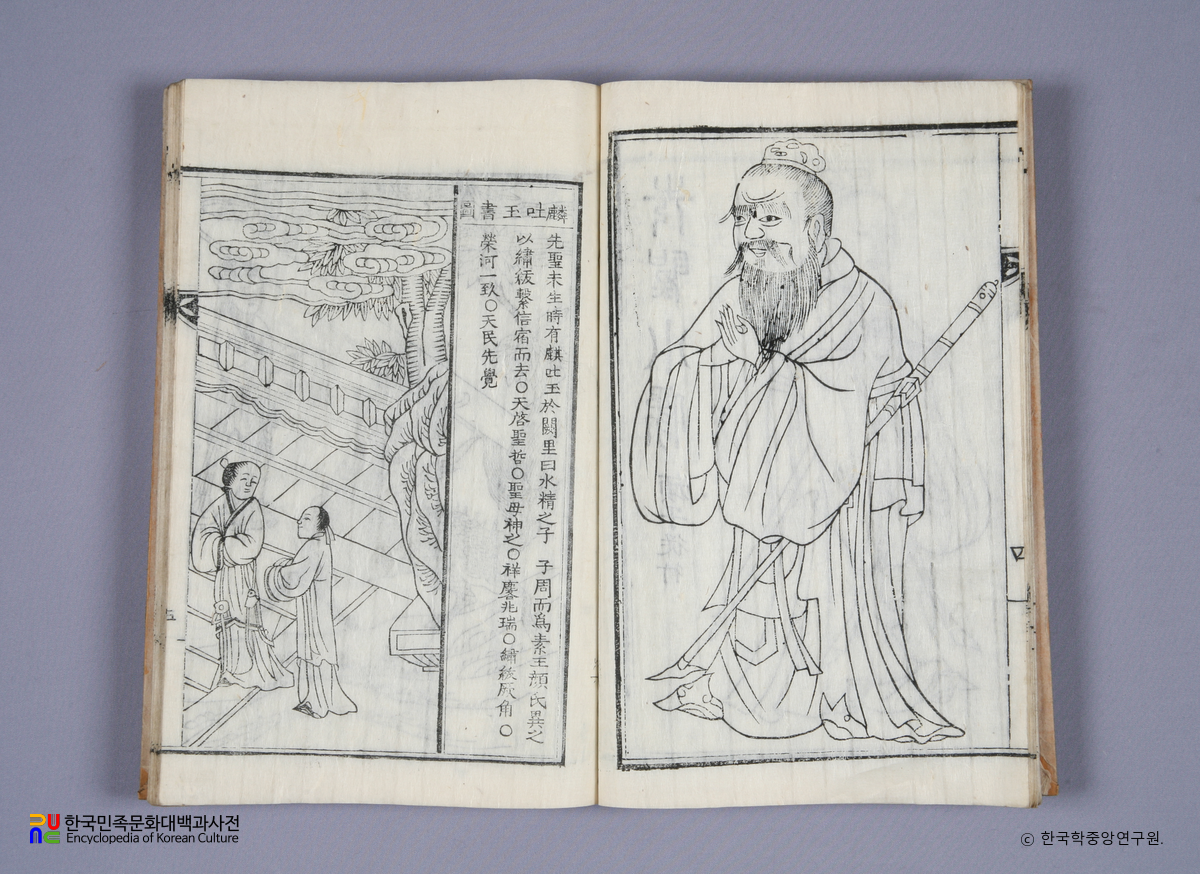 麟吐玉書圖
先聖未生時有麒吐玉於闕里曰水精之子 子周而爲素王顔氏異之
以繡紱繫信宿而去○天啓聖哲○聖母神之○祥麐兆瑞○繡紱厥角○
榮河一致○天民先覺
五
한국민족문화대백과사전
Encyclopedia of Korean Culture
ⓒ 한국학중앙연구원.